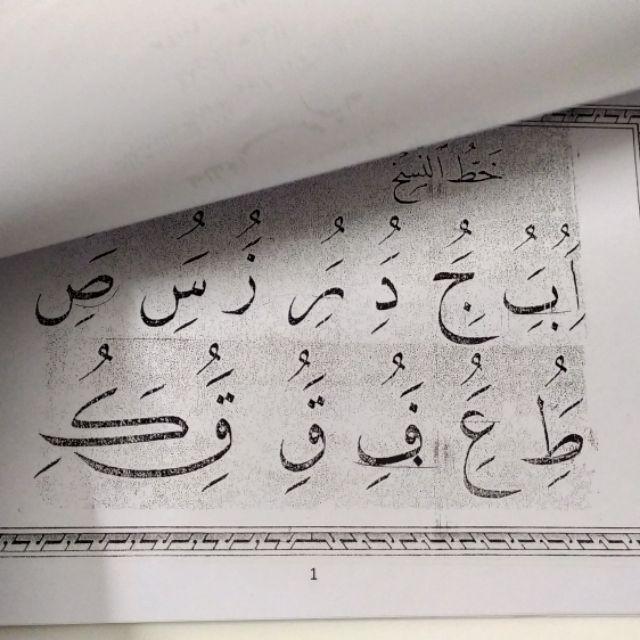 خَطُّ النَّسْخِ
اَُِ بَُِ جَُِ دَُِ رَُِ زَُ سَُِ صَِ
طَُِ عَُِ فَُِ قَُِ قَُِ كَُِ
1